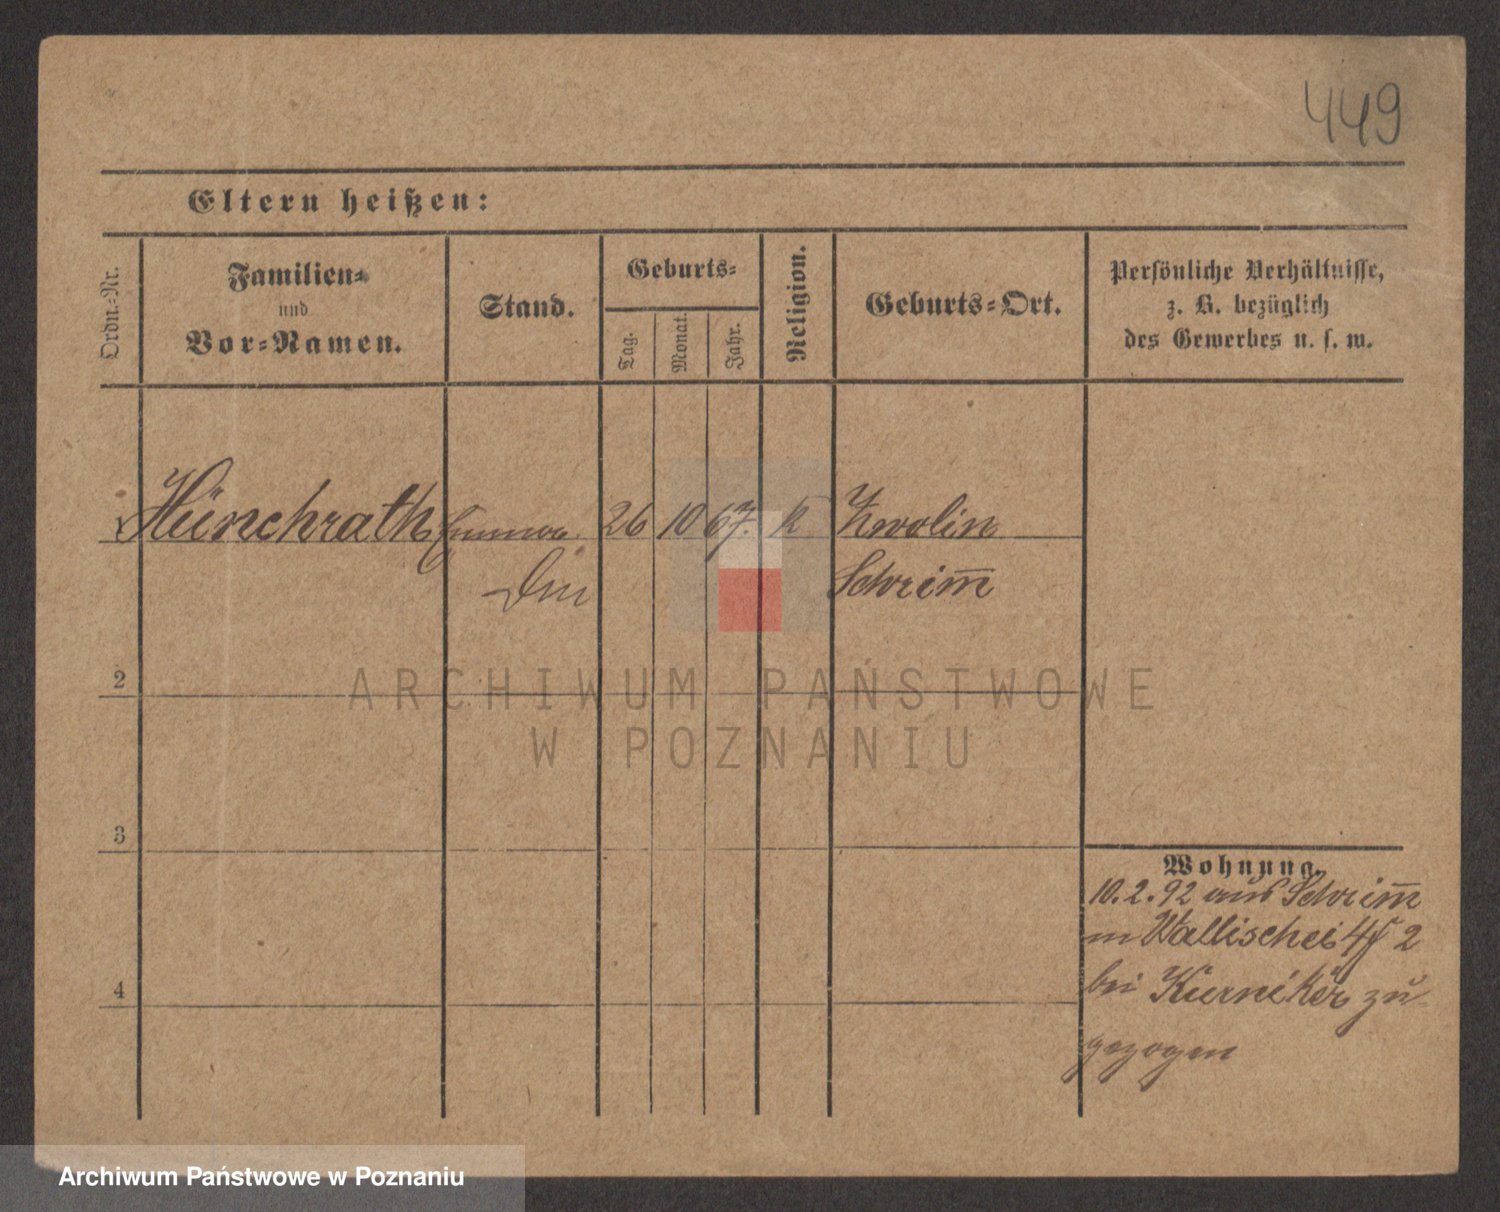 449
Eltern heißen:
Ordn.-Nr.
Familien-
und
Vor-Namen.
Stand.
Geburts-
Tag.
Monat.
Jahr.
Religion.
Geburts-Ort.
Persönliche Verhältnisse,
z. B. bezüglich
des Gewerbes u. s. w.
1 Hünchrath Emma 26 10 67. k Zwolin
Schrim̅
2
ARCHIWUM PAŃSTWOWE
W POZNANIU
3
Wohnung.
10.2.92 aus Schrim̅
Wallischei 2
4
bei Kurniker zu-
gezogen
Archiwum Państwowe w Poznaniu